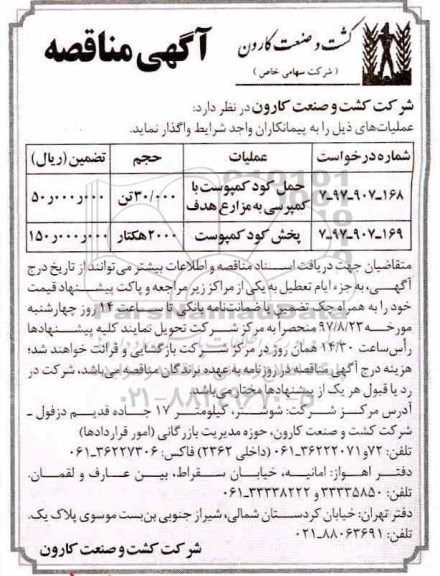 کشت و صنعت کارون
( شرکت سهامی خاص )
آگهی مناقصه
شرکت کشت و صنعت کارون در نظر دارد:
عملیات‌های ذیل را به پیمانکاران واجد شرایط واگذار نماید.
شماره درخواست عملیات حجم تضمین (ریال)
۷-۹۷-۹۰۷-۱۶۸ حمل کود کمپوست با کمپرسی به مزارع هدف ۳۰/۰۰۰تن ۵۰ر۰۰۰ر۰۰۰
۷-۹۷-۹۰۷-۱۶۹ پخش کود کمپوست ۲۰۰۰هکتار ۱۵۰ر۰۰۰ر۰۰۰
متقاضیان جهت دریافت اسناد مناقصه و اطلاعات بیشتر می‌توانند از تاریخ درج
آگهی، به جزء ایام تعطیل به یکی از مراکز زیر مراجعه و پاکت پیشنهاد قیمت
خود را به همراه چک تضمین یا ضمانت‌نامه بانکی تا ساعت ۱۴ روز چهارشنبه
مورخه ۹۷/۸/۲۳ منحصرا به مرکز شرکت تحویل نمایند کلیه پیشنهادها
رأس ساعت ۱۴/۳۰ همان روز در مرکز شرکت بازگشایی و قرائت خواهند شد؛
هزینه درج آگهی مناقصه در روزنامه به عهده برندگان مناقصه می‌باشد، شرکت در
رد یا قبول هر یک از پیشنهادها مختار می‌باشد.
آدرس مرکز شرکت: شوشتر، کیلومتر ۱۷ جاده قدیم دزفول ـ
شرکت کشت و صنعت کارون، حوزه مدیریت بازرگانی (امور قراردادها)
تلفن: ۷۲و۳۶۲۲۲۰۷۱-۰۶۱ (داخلی ۲۳۶۲) فاکس: ۳۶۲۲۷۳۰۶-۰۶۱
دفتر اهواز: امانیه، خیابان سقراط، بین عارف و لقمان.
تلفن: ۳۳۳۳۵۸۵۰ و ۳۳۳۳۸۲۲۲-۰۶۱
دفتر تهران: خیابان کردستان شمالی، شیراز جنوبی بن‌بست موسوی پلاک یک.
تلفن: ۸۸۰۶۳۶۹۱-۰۲۱
شرکت کشت و صنعت کارون